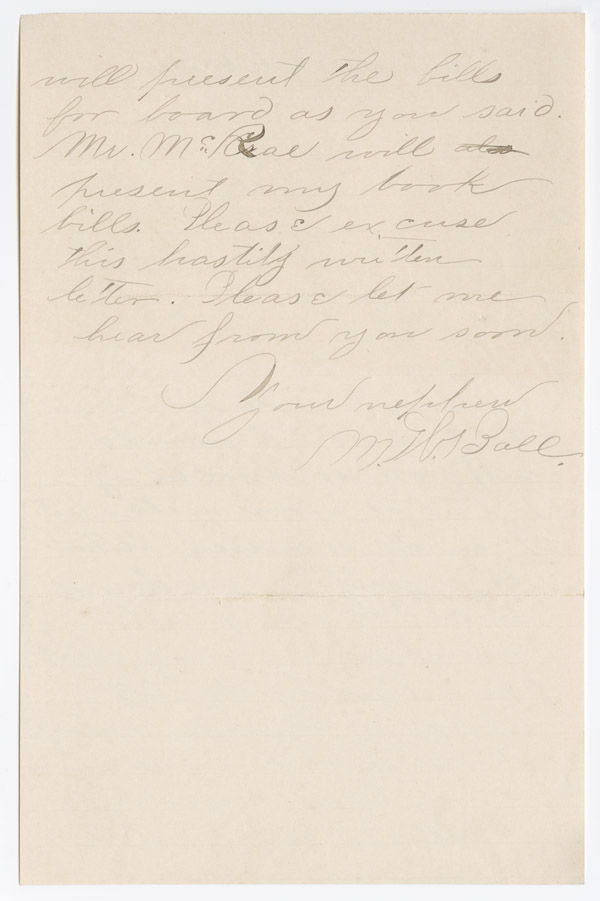 will present the bills
for board as you said.
Mr. McRae will also
present my book
bills. Please excuse
this hastily written
letter. Please let me
hear from you soon.
Your nephew
M. W. Ball.